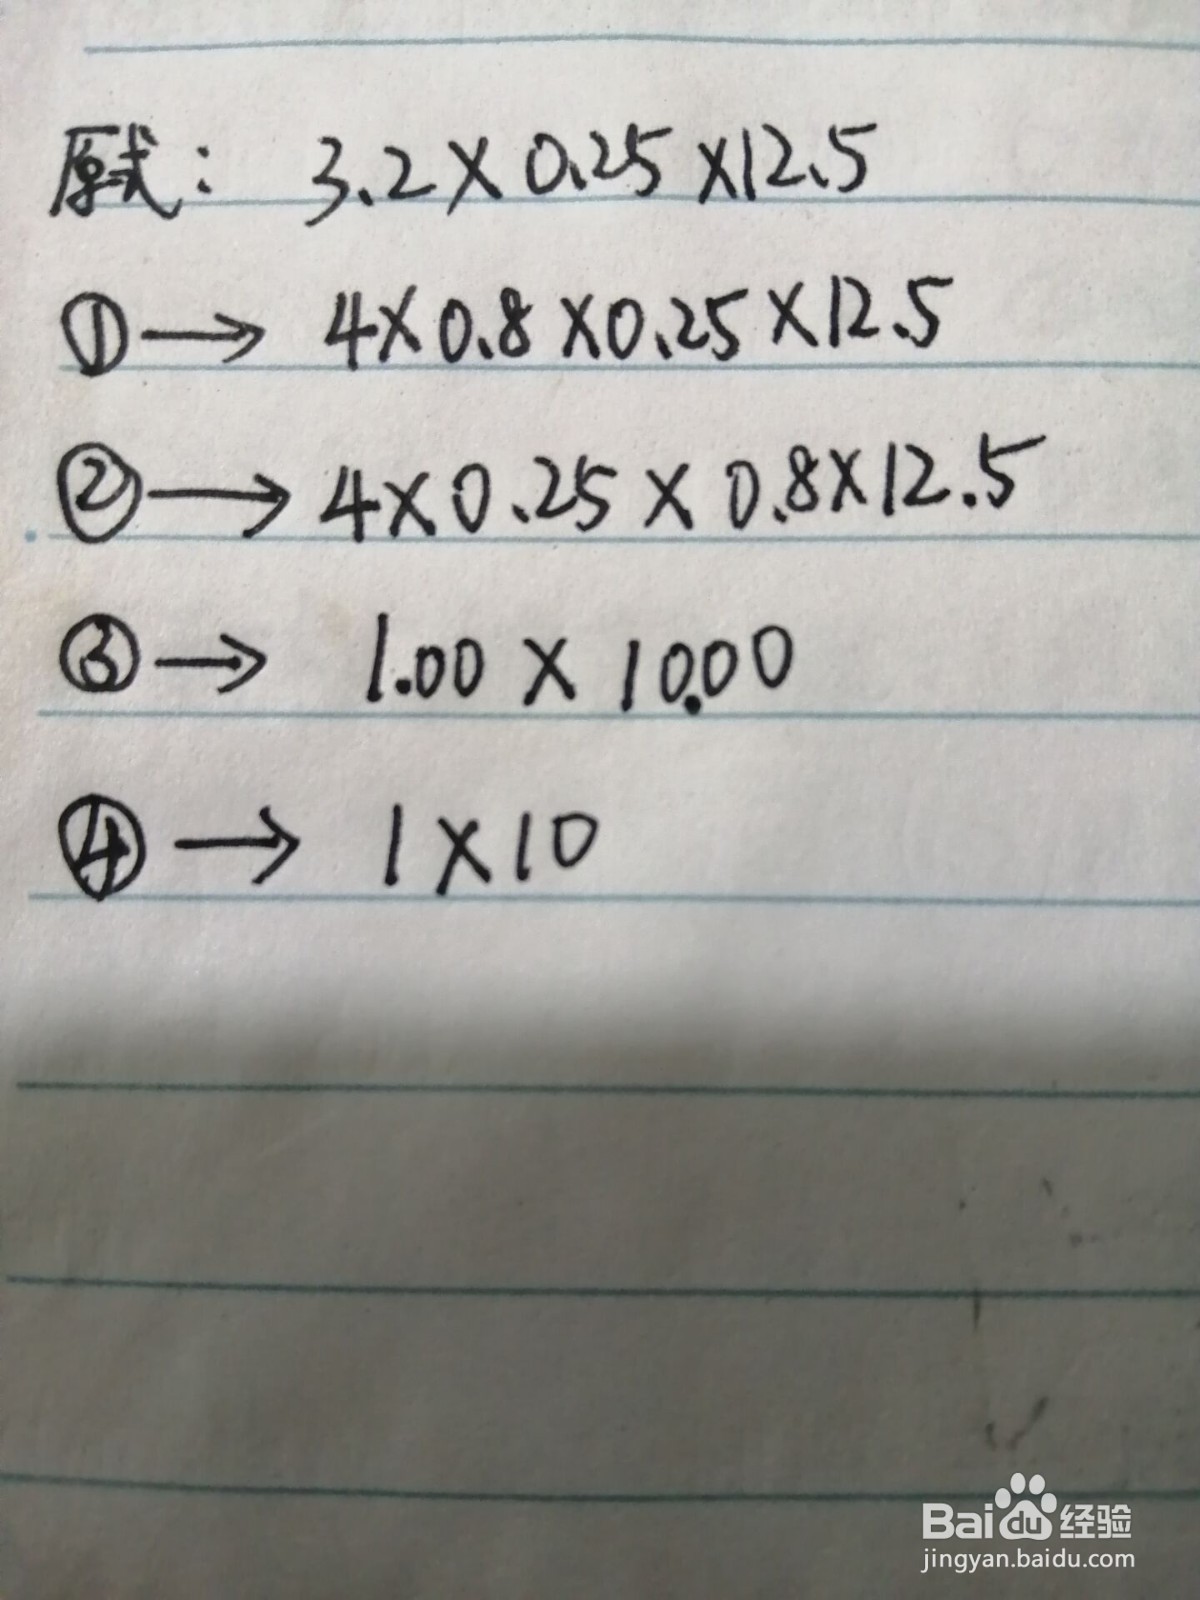 原式: 3.2×0.25×12.5
①→ 4×0.8×0.25×12.5
②→ 4×0.25×0.8×12.5
③→ 1.00×10.00
④→ 1×10
Baidu经验
jingyan.baidu.com